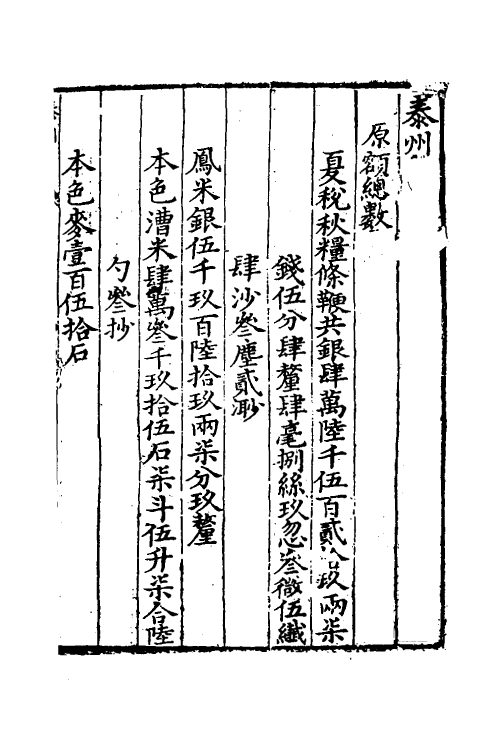 泰州
原額總數
夏稅秋糧條鞭共銀肆萬陸千伍百貳玖兩柒
錢伍分肆釐肆毫捌絲玖忽叁微伍纖
肆沙叁塵貳渺
鳳米銀伍千玖百陸拾玖兩柒分玖釐
本色漕米肆萬叁千玖拾伍石柒斗伍升柒合陸
勺叁抄
本色麥壹百伍拾石